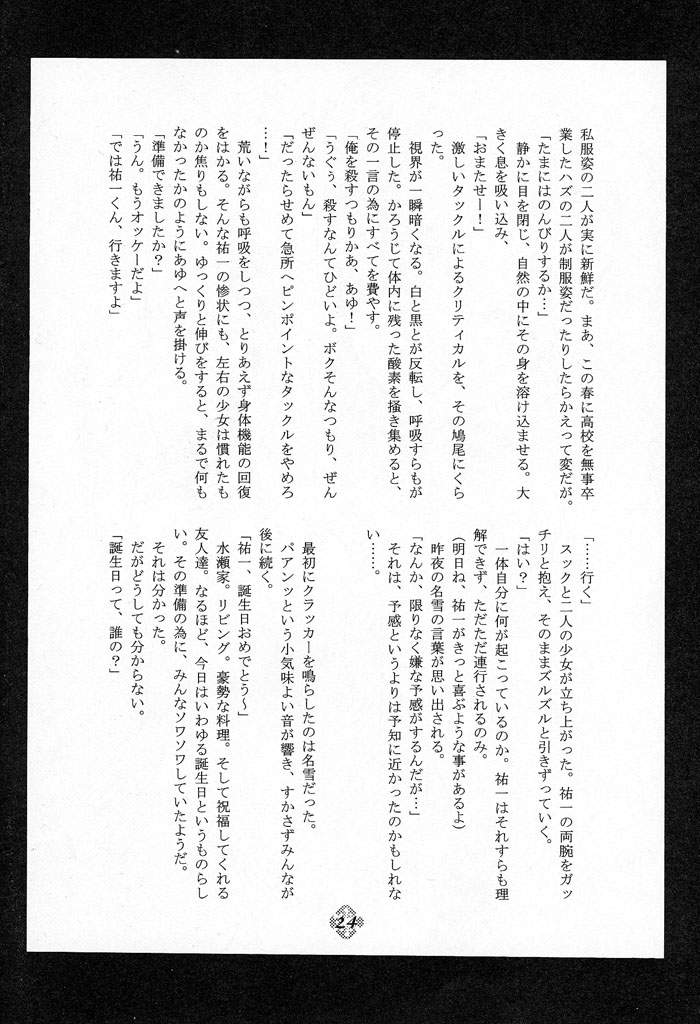 私服姿の二人が実に新鮮だ。まあ、この春に高校を無事卒
業したハズの二人が制服姿だったりしたらかえって変だが。
「たまにはのんびりするか…」
静かに目を閉じ、自然の中にその身を溶け込ませる。大
きく息を吸い込み、
「おまたせー！」
激しいタックルによるクリティカルを、その鳩尾にくら
った。
視界が一瞬暗くなる。白と黒とが反転し、呼吸すらもが
停止した。かろうじて体内に残った酸素を掻き集めると、
その一言の為にすべてを費やす。
「俺を殺すつもりかあ、あゆ！」
「うぐぅ、殺すなんてひどいよ。ボクそんなつもり、ぜん
ぜんないもん」
「だったらせめて急所へピンポイントなタックルをやめろ
…！」
荒いながらも呼吸をしつつ、とりあえず身体機能の回復
をはかる。そんな祐一の惨状にも、左右の少女は慣れたも
のか焦りもしない。ゆっくりと伸びをすると、まるで何も
なかったかのようにあゆへと声を掛ける。
「準備できましたか？」
「うん。もうオッケーだよ」
「では祐一くん、行きますよ」
「……行く」
スックと二人の少女が立ち上がった。祐一の両腕をガッ
チリと抱え、そのままズルズルと引きずっていく。
「はい？」
一体自分に何が起こっているのか。祐一はそれすらも理
解できず、ただただ連行されるのみ。
（明日ね、祐一がきっと喜ぶような事があるよ）
昨夜の名雪の言葉が思い出される。
「なんか、限りなく嫌な予感がするんだが…」
それは、予感というよりは予知に近かったのかもしれな
い……。
最初にクラッカーを鳴らしたのは名雪だった。
パアンッという小気味よい音が響き、すかさずみんなが
後に続く。
「祐一、誕生日おめでとう〜」
水瀬家。リビング。豪勢な料理。そして祝福してくれる
友人達。なるほど、今日はいわゆる誕生日というものらし
い。その準備の為に、みんなソワソワしていたようだ。
それは分かった。
だがどうしても分からない。
「誕生日って、誰の？」
24